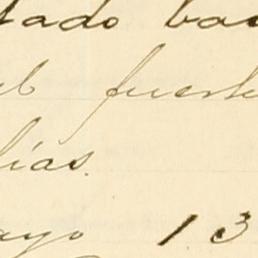 tado ba
el fuert
días.
ayo 13